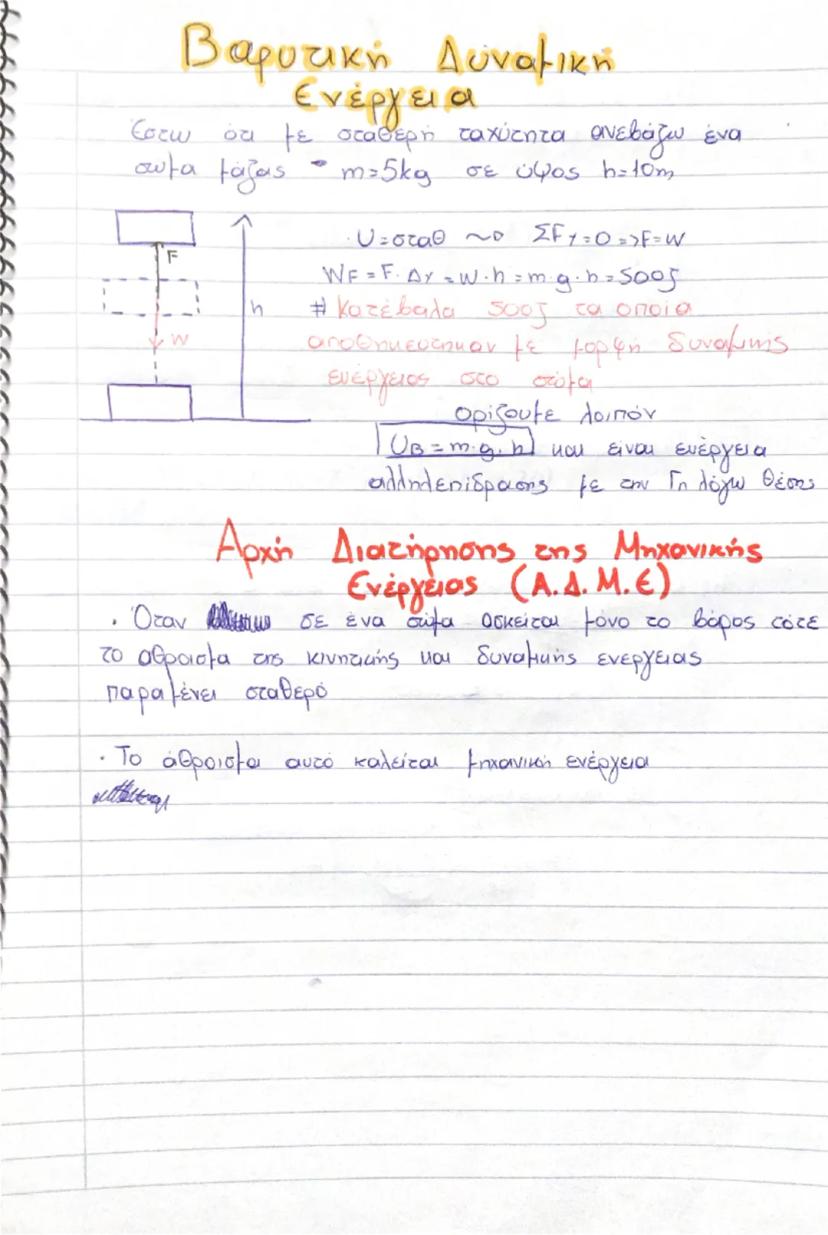 Βαρυτική Δυναμική
Ενέργεια
Έστω ότι με σταθερή ταχύτητα ανεβάζω ένα
σώμα μάζας m=5kg σε ύψος h=10m
F
h
w
υ=σταθ ~> ΣFy=0=>F=w
WF = F·Δy = w·h = m·g·h = 500J
# Κατέβαλα 500J τα οποία
αποθηκεύτηκαν με μορφή δυναμικής
ενέργειας στο σώμα
ορίζουμε λοιπόν
UB = m·g·h και είναι ενέργεια
αλληλεπίδρασης με την Γη λόγω θέσης
Αρχή Διατήρησης της Μηχανικής
Ενέργειας (Α.Δ.Μ.Ε)
· Όταν σε ένα σώμα ασκείται μόνο το βάρος τότε
το άθροισμα της κινητικής και δυναμικής ενέργειας
παραμένει σταθερό
· Το άθροισμα αυτό καλείται μηχανική ενέργεια